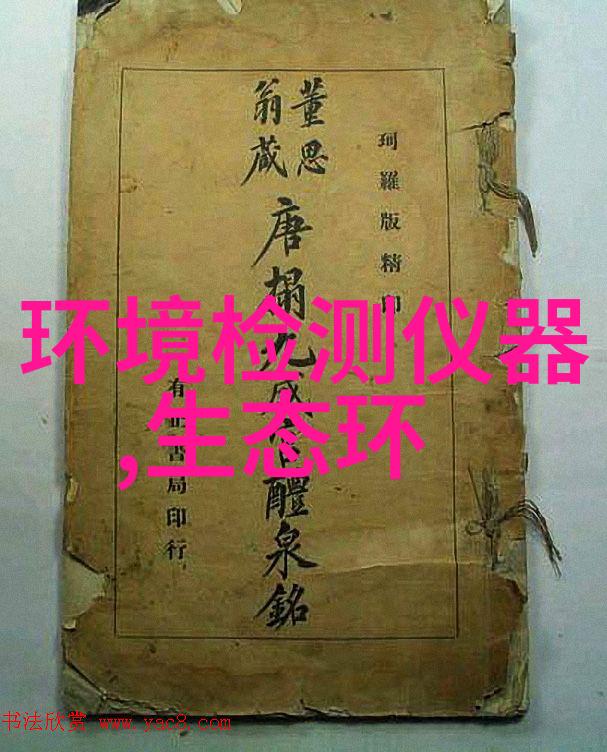 珂羅版精印
董思
翁藏
唐搨九成宮醴泉銘
有正書局印行
环境检测仪器
,生态环
书法欣赏 www.yac8.com